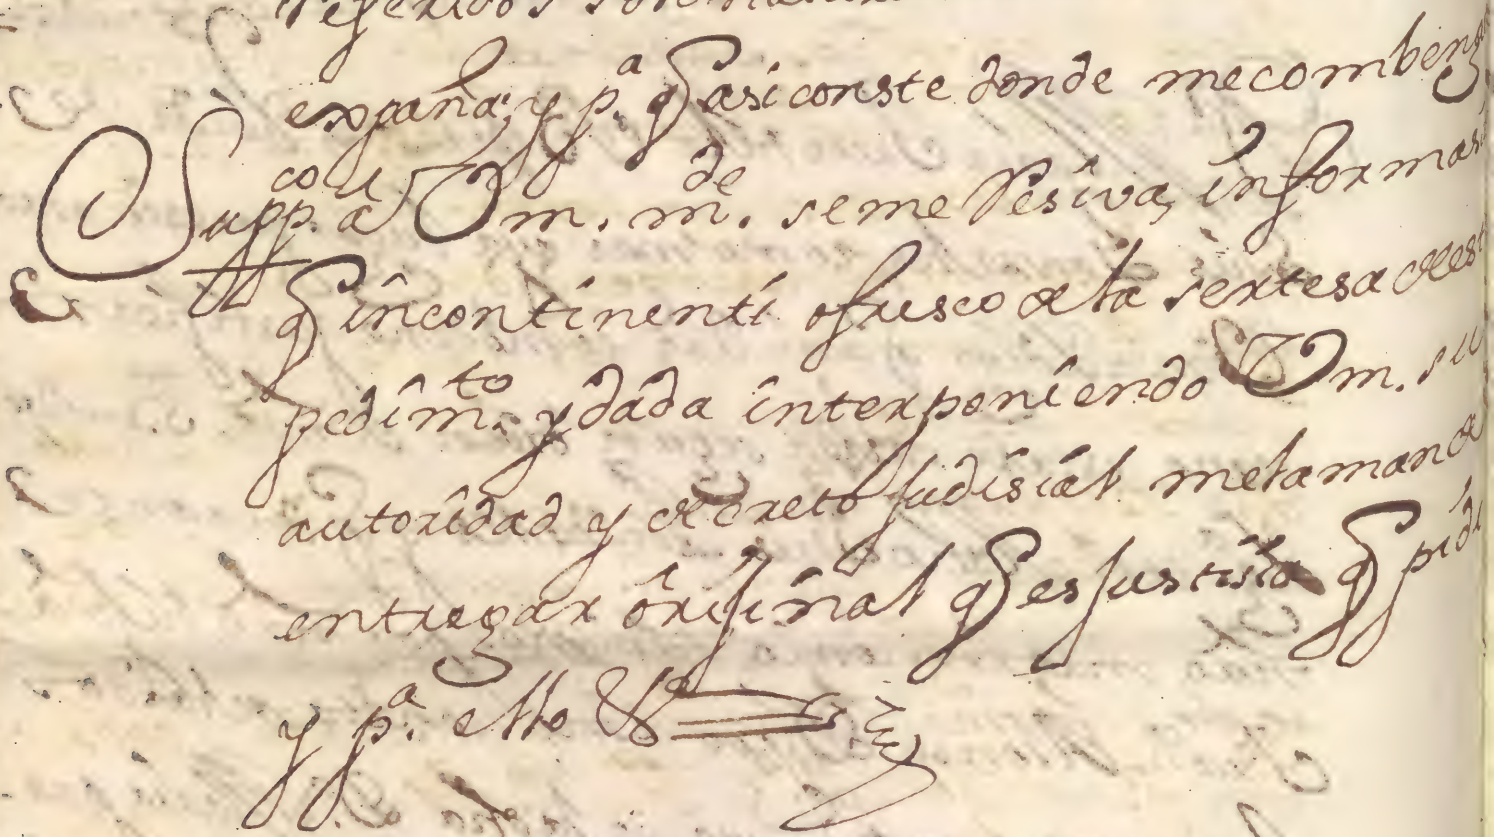 referidos
expaña, y p.ª q asi conste donde mecombenga
Supp.co a Vm. m.de se me Resiva, informas
q incontinenti ofresco de la sertesa de est
pedim.to y dada interponiendo Vm. su
autoridad y decreto Judisial mela mande
entregar orijinal q es Justisia q pido
y p.ª ello &